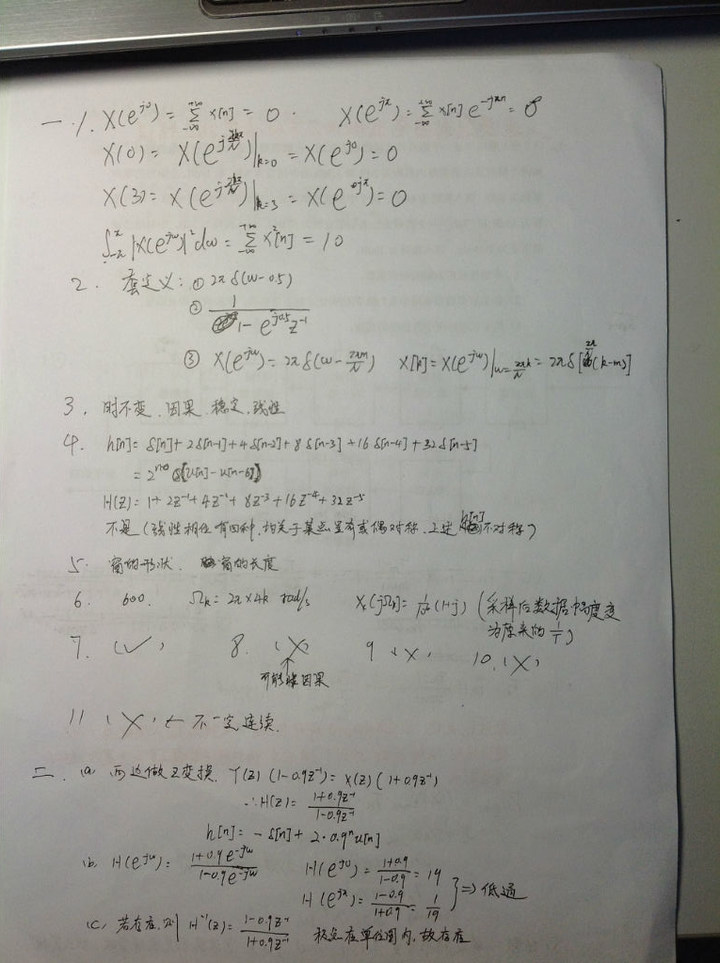 一、1. X(e^{j0}) = Σ_{-∞}^{+∞} x[n] = 0. X(e^{jπ}) = Σ_{-∞}^{+∞} x[n] e^{-jπn} = 0
X(0) = X(e^{j2πk/N})|_{k=0} = X(e^{j0}) = 0
X(3) = X(e^{j2πk/N})|_{k=3} = X(e^{jπ}) = 0
∫_{-π}^{π} |X(e^{jω})|² dω = Σ_{-∞}^{+∞} x²[n] = 10
2. 定义: ① 2πδ(ω-0.5)
② 1/(1-e^{j0.5}z^{-1})
③ X(e^{jω}) = 2πδ(ω-2πm/N) X[k] = X(e^{jω})|_{ω=2πk/N} = 2πδ[2π/N(k-m)]
3. 时不变、因果、稳定、线性
4. h[n] = δ[n]+2δ[n-1]+4δ[n-2]+8δ[n-3]+16δ[n-4]+32δ[n-5]
= 2^n {u[n]-u[n-6]}
H(z) = 1+2z^{-1}+4z^{-2}+8z^{-3}+16z^{-4}+32z^{-5}
不是 (线性相位有四种, 相关于某点呈奇或偶对称, h[n]不对称)
5. 窗的形状、窗的长度
6. 600. Ω_k = 2π×4k rad/s X_c(jΩ_k) = (1+j) (采样后数据幅度变
为原来的 1/T)
7. (✓) 8. (X) 9. (X) 10. (X)
可能非因果
11 (X) ← 不一定连续.
二. (a) 两边做Z变换. Y(z)(1-0.9z^{-1}) = X(z)(1+0.9z^{-1})
∴ H(z) = (1+0.9z^{-1})/(1-0.9z^{-1})
h[n] = -δ[n] + 2·0.9^n u[n]
(b) H(e^{jω}) = (1+0.9e^{-jω})/(1-0.9e^{-jω}) H(e^{j0}) = (1+0.9)/(1-0.9) = 19
H(e^{jπ}) = (1-0.9)/(1+0.9) = 1/19 } ⇒ 低通
(c) 若存在, 则 H^{-1}(z) = (1-0.9z^{-1})/(1+0.9z^{-1}) 极点在单位圆内, 故存在